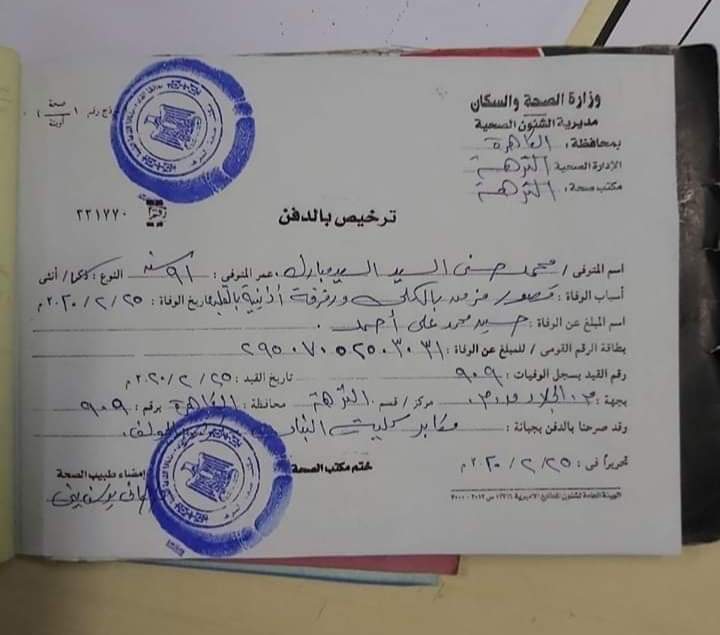 وزارة الصحة والسكان
مديرية الشئون الصحية
بمحافظة: القاهرة
الإدارة الصحية النزهة
مكتب صحة: النزهة
صحة
أوبئة
٢٢١٧٧٠
ترخيص بالدفن
اسم المتوفى / محمد حسنى السيد السيد مبارك، عمر المتوفى: ٩١ سنة النوع: ذكر / أنثى
أسباب الوفاة: قصور مزمن بالكلى ورفرفة أذينية بالقلب تاريخ الوفاة: ٢٠٢٠/٢/٢٥ م
اسم المبلغ عن الوفاة: حسيد محمد على أحمد
بطاقة الرقم القومى / للمبلغ عن الوفاة:
رقم القيد بسجل الوفيات: ٩٠٩ تاريخ القيد: ٢٠٢٠/٢/٢٥ م
بجهة: م. الجلاء مركز / قسم النزهة محافظة: القاهرة برقم: ٩٠٩
وقد صرحنا بالدفن بجبانة: مقابر كلية البنات
تحريراً فى: ٢٠٢٠/٢/٢٥ م
ختم مكتب الصحة
إمضاء طبيب الصحة
الهيئة العامة لشئون المطابع الأميرية